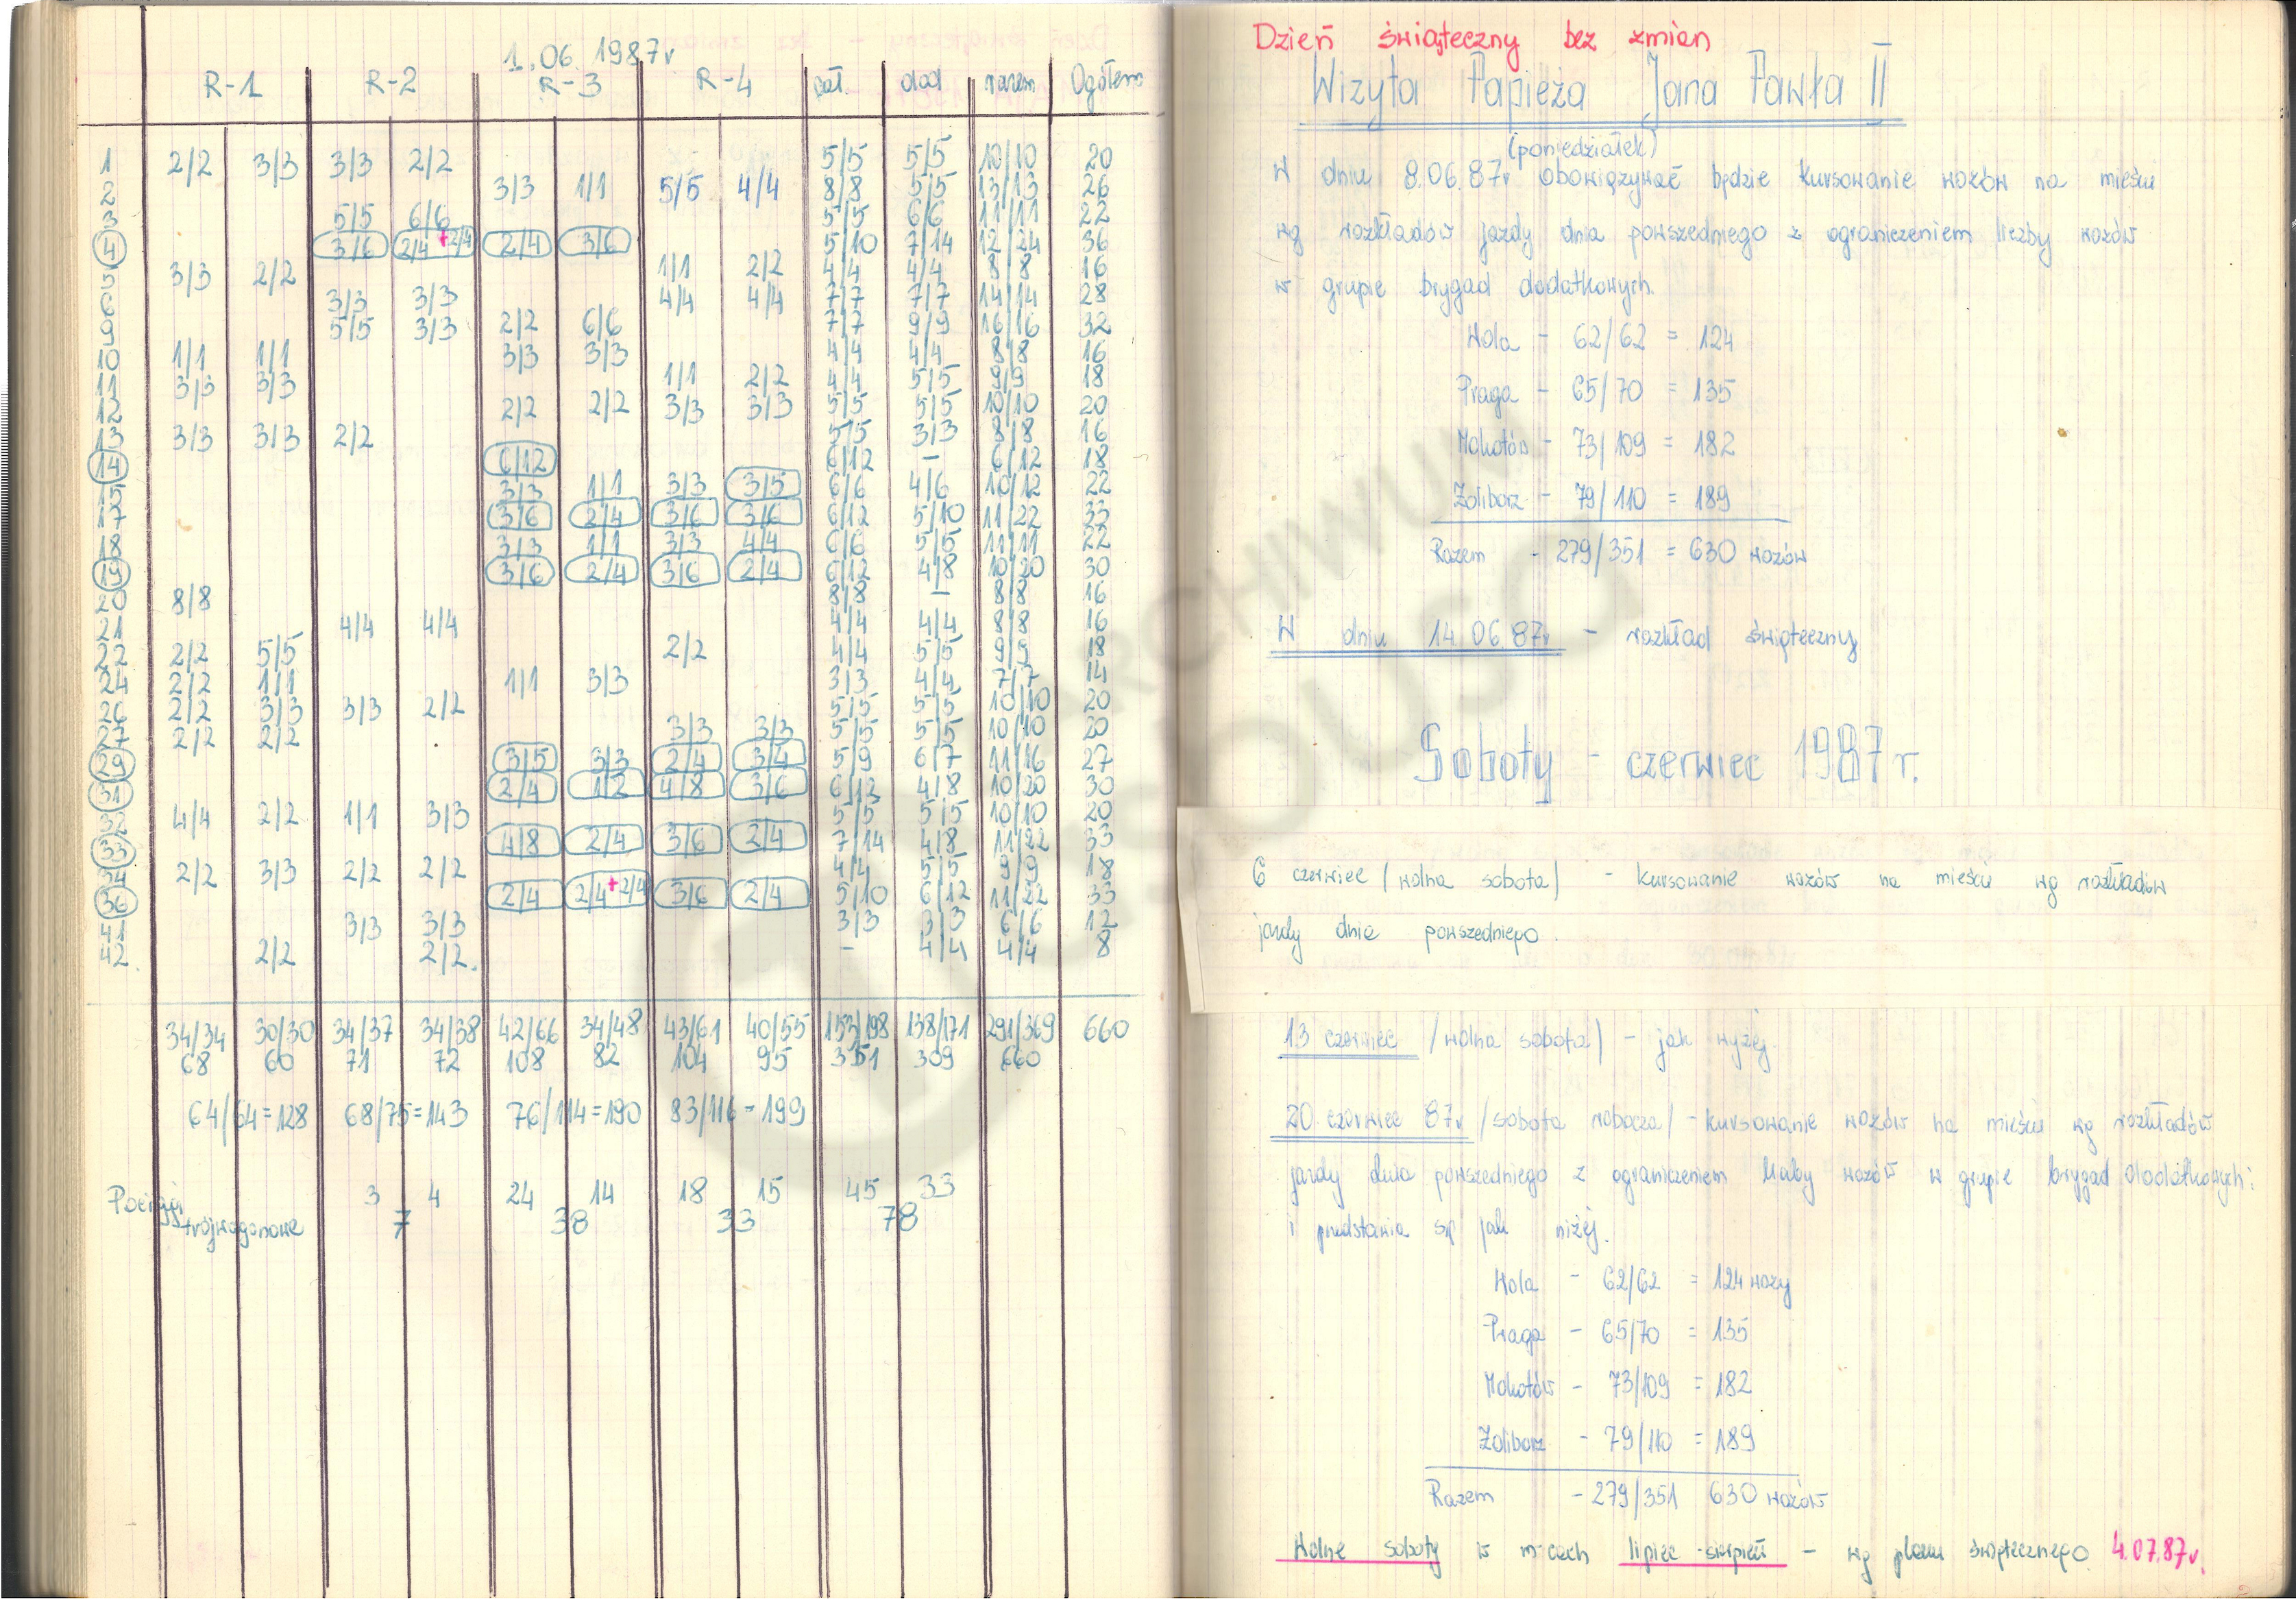 1.06.1987r
R-1 R-2 R-3 R-4 cał. dod razem Ogółem
1 2/2 3/3 3/3 2/2 5/5 5/5 10/10 20
2 3/3 1/1 5/5 4/4 8/8 5/5 13/13 26
3 5/5 6/6 5/5 6/6 11/11 22
4 3/6 2/4+2/4 2/4 3/6 5/10 7/14 12/24 36
5 3/3 2/2 1/1 2/2 4/4 4/4 8/8 16
6 3/3 3/3 4/4 4/4 7/7 7/7 14/14 28
9 5/5 3/3 2/2 6/6 7/7 9/9 16/16 32
10 1/1 1/1 3/3 3/3 4/4 4/4 8/8 16
11 3/3 3/3 1/1 2/2 4/4 5/5 9/9 18
12 2/2 2/2 3/3 3/3 5/5 5/5 10/10 20
13 3/3 3/3 2/2 5/5 3/3 8/8 16
14 6/12 6/12 - 6/12 18
15 3/3 1/1 3/3 3/5 6/6 4/6 10/12 22
17 3/6 2/4 3/6 3/6 6/12 5/10 11/22 33
18 3/3 1/1 3/3 4/4 6/6 5/5 11/11 22
19 3/6 2/4 3/6 2/4 6/12 4/8 10/20 30
20 8/8 8/8 - 8/8 16
21 4/4 4/4 4/4 4/4 8/8 16
22 2/2 5/5 2/2 4/4 5/5 9/9 18
2/2 1/1 1/1 3/3 3/3 4/4 7/7 14
26 2/2 3/3 3/3 2/2 5/5 5/5 10/10 20
27 2/2 2/2 3/3 3/3 5/5 5/5 10/10 20
29 3/5 3/3 2/4 3/4 5/9 6/7 11/16 27
31 2/4 1/2 4/8 3/6 6/12 4/8 10/20 30
32 4/4 2/2 1/1 3/3 5/5 5/5 10/10 20
33 4/8 2/4 3/6 2/4 7/14 4/8 11/22 33
34 2/2 3/3 2/2 2/2 4/4 5/5 9/9 18
36 2/4 2/4+2/4 3/6 2/4 5/10 6/12 11/22 33
3/3 3/3 3/3 3/3 6/6 12
2/2 2/2. - 4/4 4/4 8
34/34 30/30 34/37 34/38 42/66 34/48 43/61 40/55 153/198 138/171 291/369 660
68 60 71 72 108 82 104 95 351 309 660
64/64=128 68/75=143 76/114=190 83/116=199
Pociągi 3 4 24 14 18 15 45 33
trójwagonowe 7 38 33 78
Dzień świąteczny bez zmian
Wizyta Papieża Jana Pawła II
(poniedziałek)
W dniu 8.06.87r obowiązywać będzie kursowanie wozów na mieście
wg rozkładów jazdy dnia powszedniego z ograniczeniem liczby wozów
w grupie brygad dodatkowych.
Wola - 62/62 = 124
Praga - 65/70 = 135
Mokotów - 73/109 = 182
Żoliborz - 79/110 = 189
Razem - 279/351 = 630 wozów
W dniu 14.06.87r - rozkład świąteczny
Soboty - czerwiec 1987r.
6 czerwiec /wolna sobota/ - kursowanie wozów na mieście wg rozkładów
jazdy dnia powszedniego.
13 czerwiec /wolna sobota/ - jak wyżej.
20 czerwiec 87r /sobota robocza/ - kursowanie wozów na mieście wg rozkładów
jazdy dnia powszedniego z ograniczeniem liczby wozów w grupie brygad dodatkowych:
i przedstawia się jak niżej.
Wola - 62/62 = 124 wozy
Praga - 65/70 = 135
Mokotów - 73/109 = 182
Żoliborz - 79/110 = 189
Razem - 279/351 630 wozów
Wolne soboty w m-cach lipiec-sierpień - wg planu świątecznego 4.07.87r.